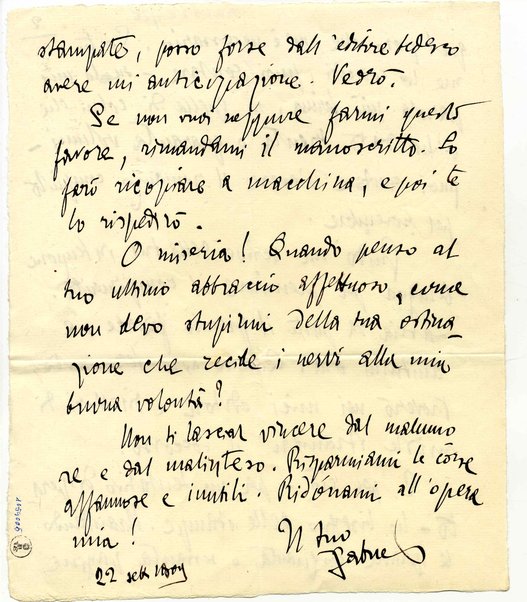 stampate, posso forse dall'editore tedesco
avere un'anticipazione. Vedrò.
Se non vuoi neppure farmi questo
favore, rimandami il manoscritto. Lo
farò ricopiare a macchina, e poi te
lo rispedirò.
O miseria! Quando penso al
tuo ultimo abbraccio affettuoso, come
non devo stupirmi della tua ostina
zione che recide i nervi alla mia
buona volontà?
Non ti lasciar vincere dal malumo
re e dal malinteso. Risparmiami le corse
affannose e inutili. Ridonami all'opera
mia!
Il tuo
Gabriel
22 sett.